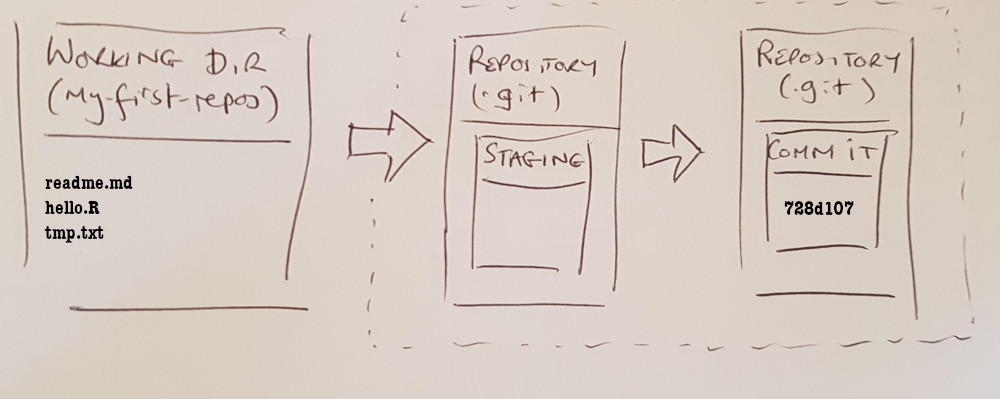 WORKING DIR
(My-first-repos)
readme.md
hello.R
tmp.txt
REPOSITORY
(.git)
STAGING
REPOSITORY
(.git)
COMMIT
728d107